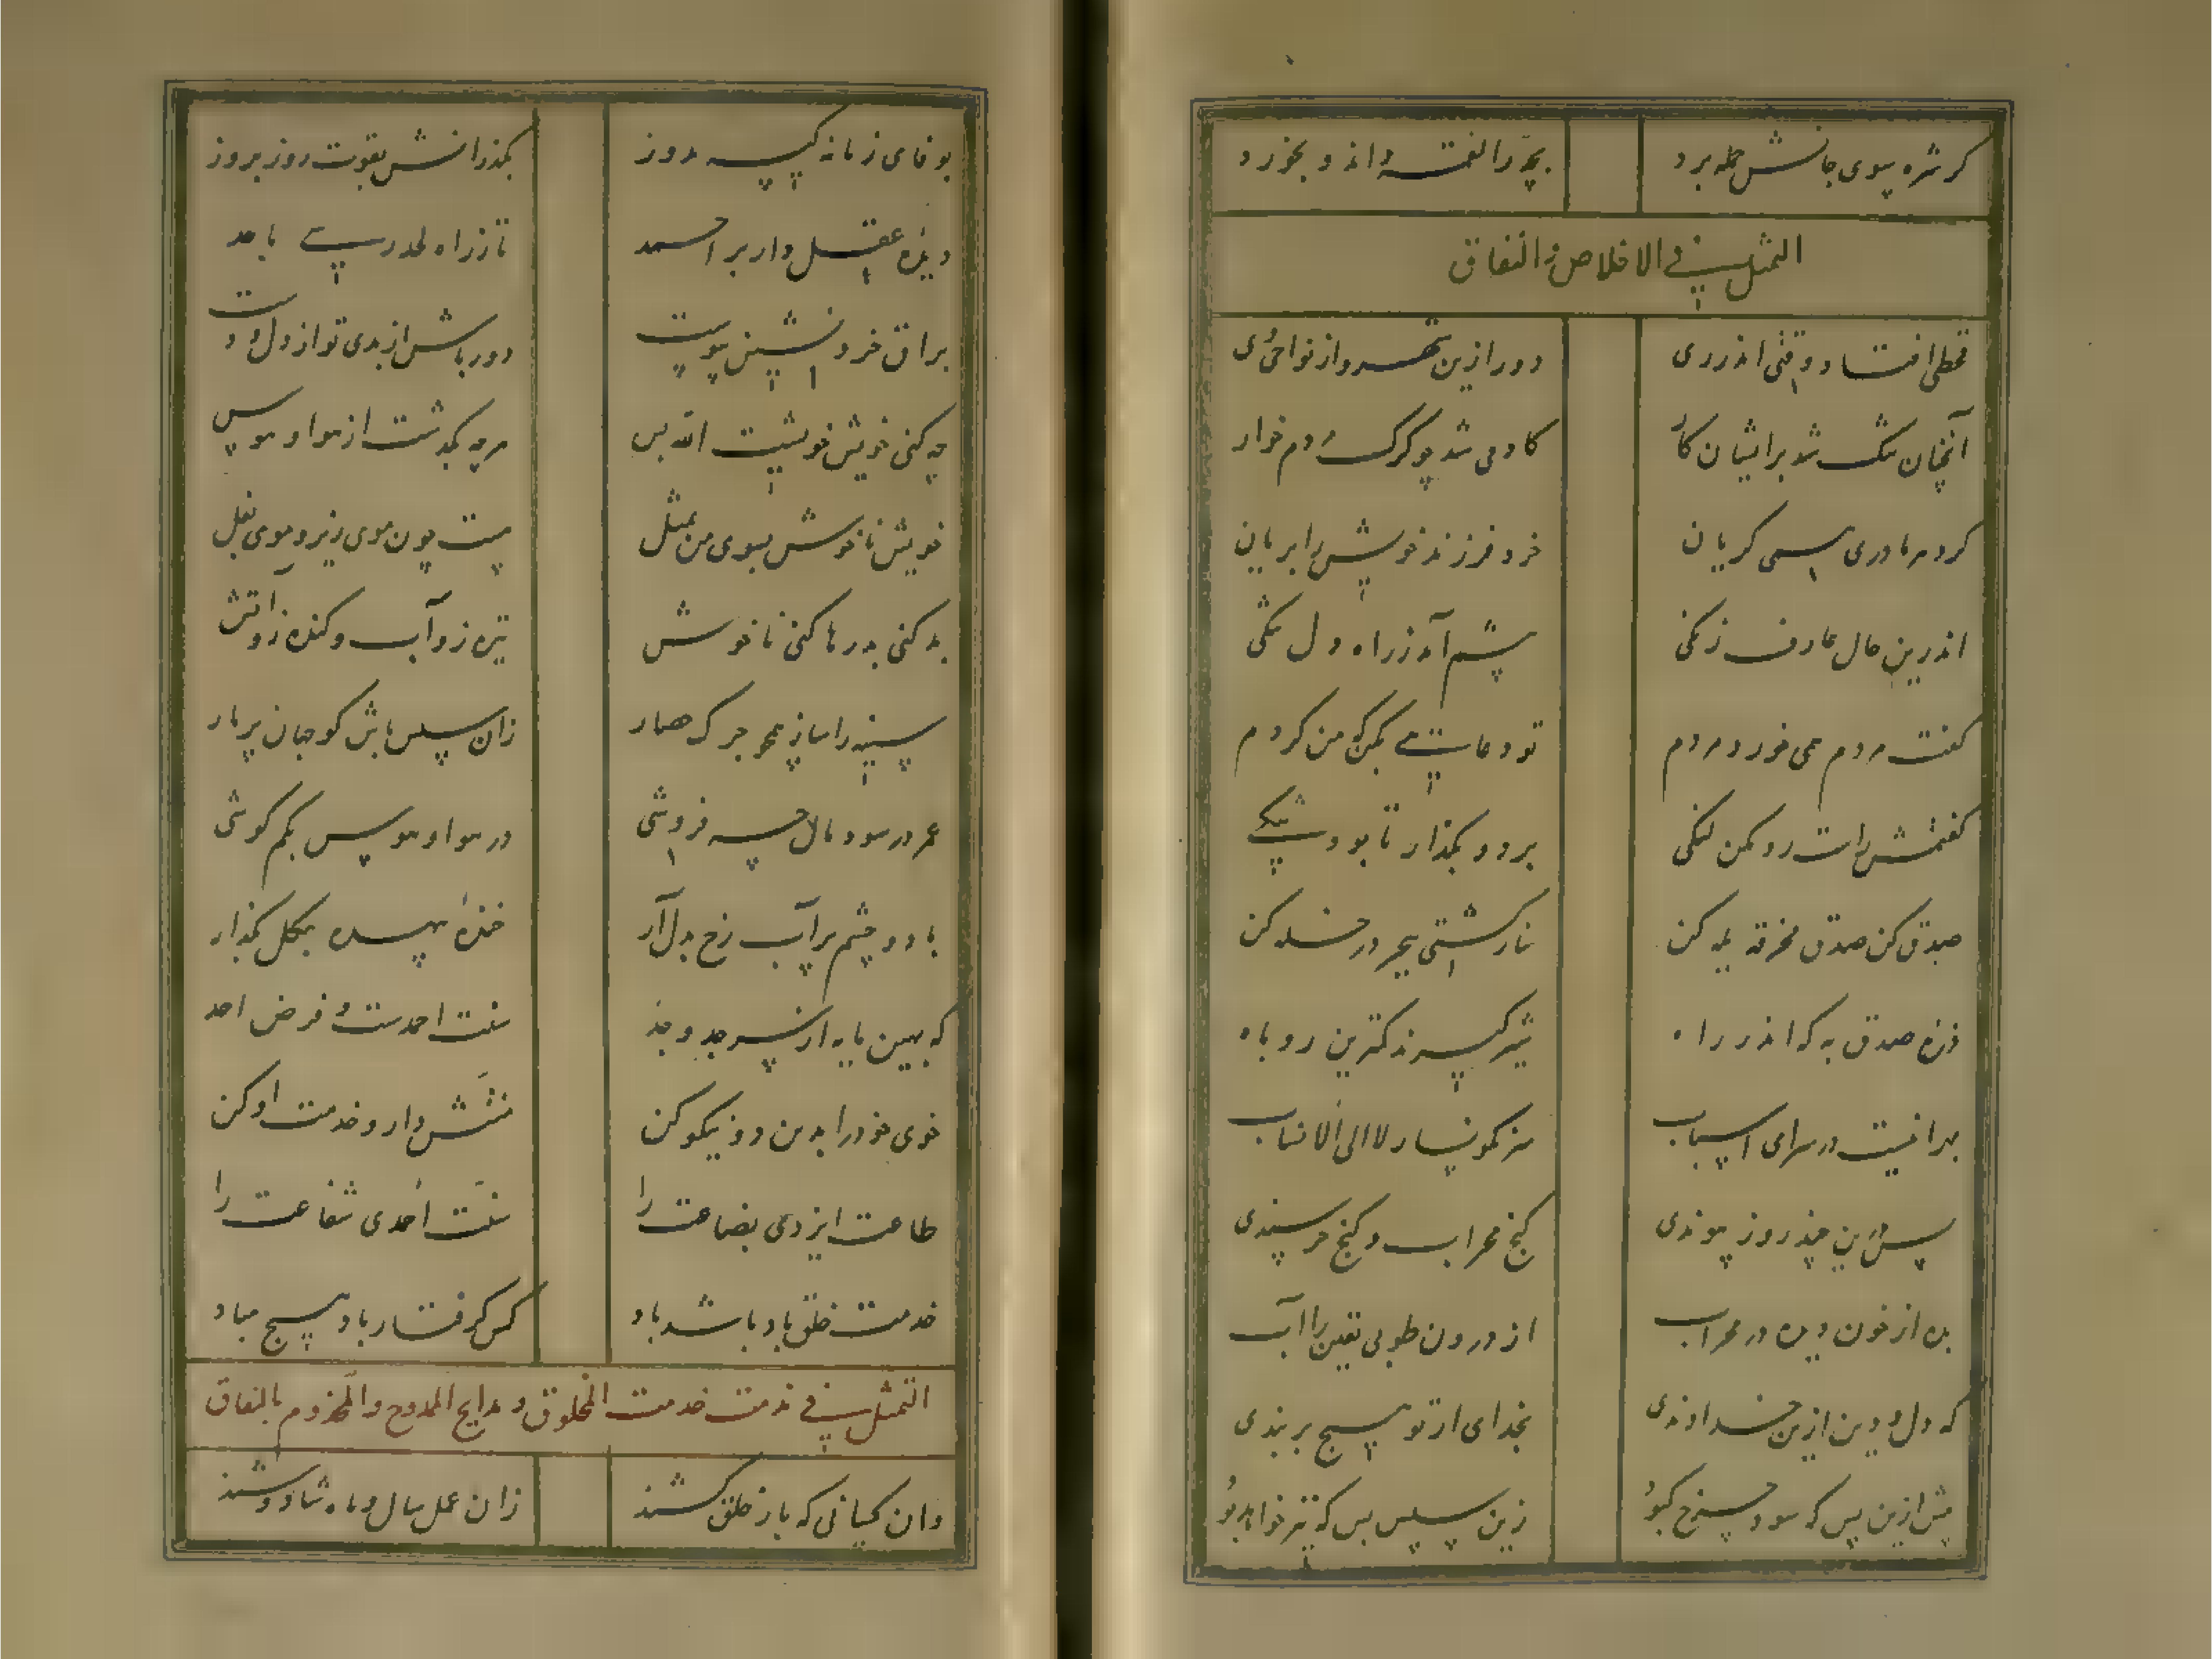 گربه سوی جانش حمله برد
بچه را لقمه داند و بخورد
التمثیل فی الاخلاص و النفاق
قحطی افتاد وقتی اندر ری
دور ازین شهر و از نواحی وی
آنچنان تنگ شد بر ایشان کار
کادمی شد چو گرگ مردم خوار
کرد هر مادری همی گریان
خرد فرزند خویش را بریان
اندرین حال عارف زنگی
پیشم آمد ز راه دل تنگی
گفت مردم همی خورد مردم
تو دعایی بکن که من کردم
بر در و بگذار تا بود
صدق کن صدق مخرقه یله کن
ذره صدق به که اندر راه
شیر گیرند کمترین روباه
سرای اسباب
لا الی الانساب
پس این چند روز پیوندی
کنج محراب و گنج خرسندی
بده از خون دیده در محراب
از درون طوبی یقین را آب
که دل و دین ازین خداوندی
بخدای ار تو هیچ بربندی
پیش ازین پس که سود چرخ کبود
زین سپس بس که نیز خواهد بود
بوفای زمانه کیسه مدوز
بگذرانش بقوت روز بروز
دیده عقل دار بر احمد
تا ز راه لحد رسی باحد
براق خرد نشین
دور باش از بدی تو از دل و دست
چه کنی خویش خویشیت الله بس
هرچه بگذشت از هوا و هوس
خویش ناخوش بسوی من بمثل
هست چون موی زیر و موی بغل
بد کنی بد رها کنی ناخوش
تیره زو آب و کنده زو آتش
سینه را ساز همچو جرگ حصار
زان سپس باش گو جهان پر مار
عمر در سود مال چه فروشی
در هوا و هوس بکم کوشی
با دو چشم پر آب رخ بدل آر
خنده بیهده بگل بگذار
که بهین پایه از پس جد و جد
سنت احمدست و فرض احد
خوی خود را بدین دو نیکو کن
منتش دار و خدمت او کن
طاعت ایزدی بضاعت را
سنت احمدی شفاعت را
خدمت خلق باد باشد باد
کس گرفتار باد هیچ مباد
التمثیل فی مذمت خدمت المخلوق و مدایح الممدوح والمخدوم بالنفاق
وان کسانی که بار خلق کشند
زان عمل سال و ماه شاد و خوشند